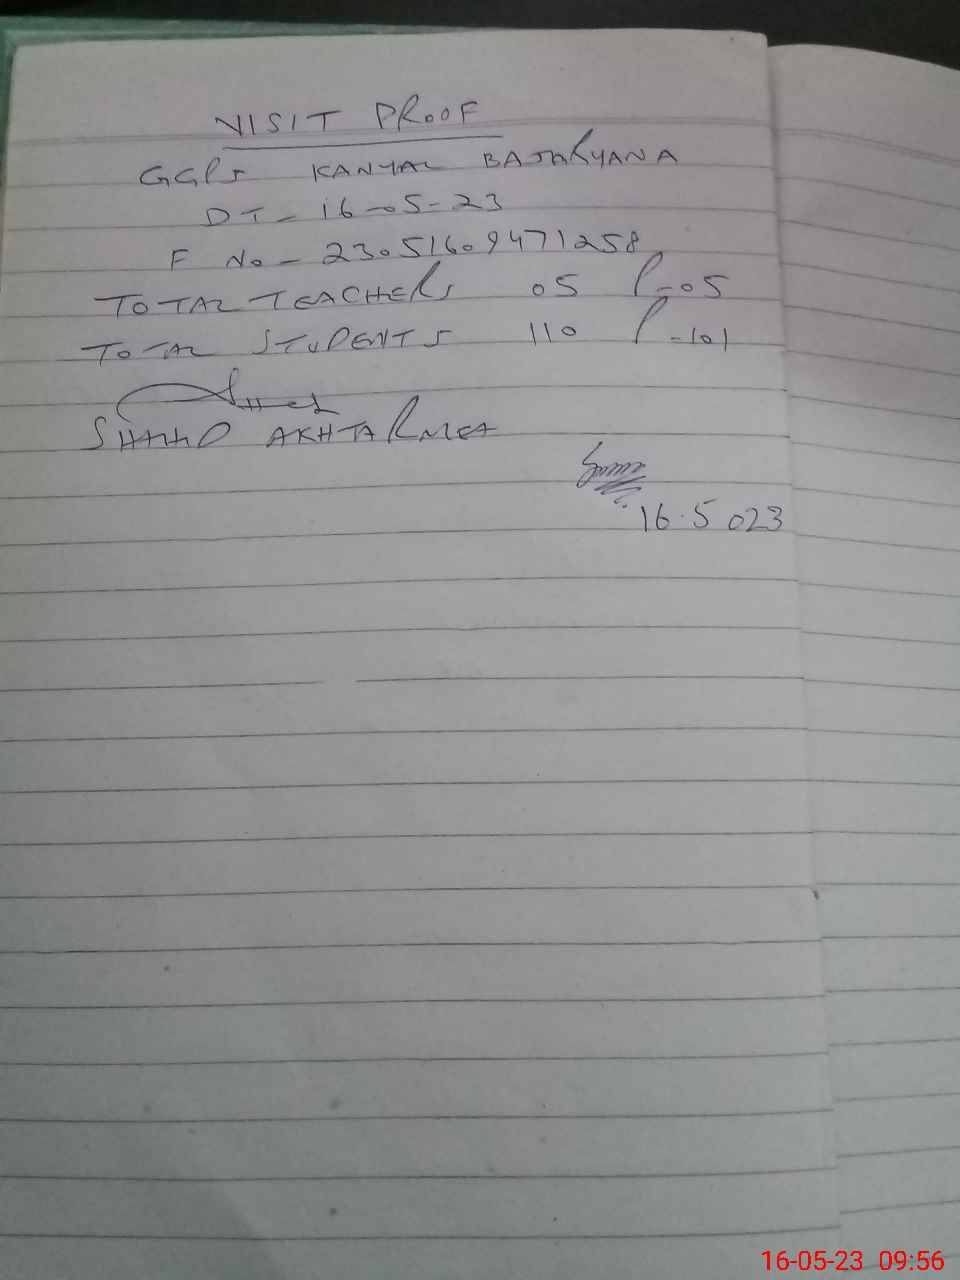 VISIT PROOF
GGPS KANYAL BAJARYANA
DT - 16-05-23
F No - 23051609471258
TOTAL TEACHERS 05 P-05
TOTAL STUDENTS 110 P-101
SHAHID AKHTAR MEA
16.5 023
16-05-23 09:56